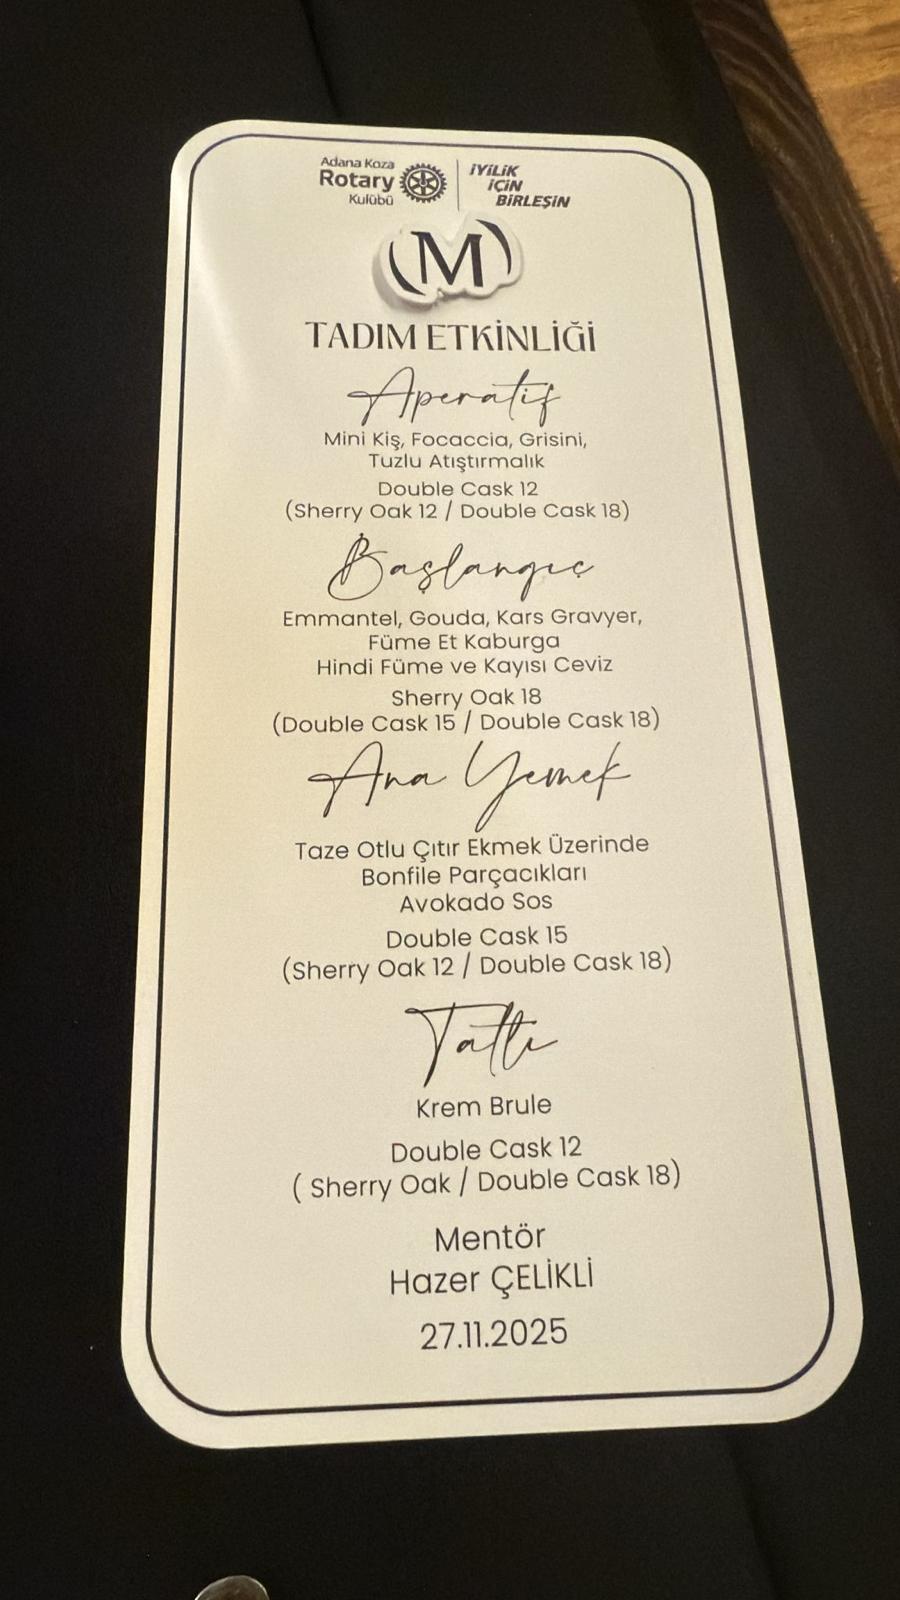 Adana Koza
Rotary
Kulübü
İYİLİK
İÇİN
BİRLEŞİN
(M)
TADIM ETKİNLİĞİ
Aperatif
Mini Kiş, Focaccia, Grisini,
Tuzlu Atıştırmalık
Double Cask 12
(Sherry Oak 12 / Double Cask 18)
Başlangıç
Emmantel, Gouda, Kars Gravyer,
Füme Et Kaburga
Hindi Füme ve Kayısı Ceviz
Sherry Oak 18
(Double Cask 15 / Double Cask 18)
Ana Yemek
Taze Otlu Çıtır Ekmek Üzerinde
Bonfile Parçacıkları
Avokado Sos
Double Cask 15
(Sherry Oak 12 / Double Cask 18)
Tatlı
Krem Brule
Double Cask 12
( Sherry Oak / Double Cask 18)
Mentör
Hazer ÇELİKLİ
27.11.2025